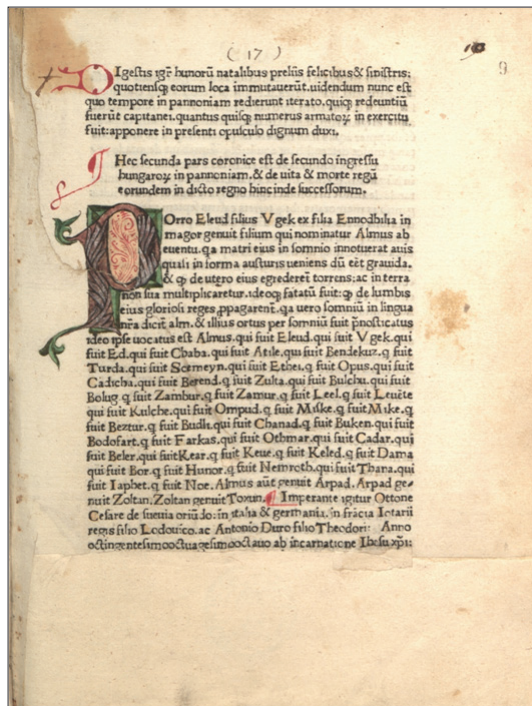 (17)
9
DIgestis igr̃ hunorũ natalibus preliis felicibus & sinistris:
quotiensq; eorum loca immutauerũt. uidendum nunc est
quo tempore in pannoniam redierunt iterato. quiq; redeuntiũ
fuerũt capitanei. quantus quisq; numerus armatoꝝ in exercitu
fuit: apponere in presenti opusculo dignum duxi.
¶ Hec secunda pars coronice est de secundo ingressu
hungaroꝝ in pannoniam. & de uita & morte regũ
eorundem in dicto regno hinc inde successorum.
POrro Eleud filius Vgek ex filia Ennodbilia in
magor genuit filium qui nominatur Almus ab
euentu. qa matri eius in somnio innotuerat auis
quasi in forma austuris ueniens dũ eẽt grauida.
& ꝙ de utero eius egrederet̃ torrens; ac in terra
non sua multiplicaretur. ideoq; fatatũ fuit: ꝙ de lumbis
eius gloriosi reges ꝓpagarent̃. qa uero somniũ in lingua
nr̃a dicit̃ alm. & illius ortus per somniũ fuit p̃nosticatus
ideo ipse uocatus est Almus. qui fuit Eleud. qui fuit Vgek. qui
fuit Ed. qui fuit Chaba. qui fuit Atile. qui fuit Bendekuz. q̃ fuit
Turda. qui fuit Scemeyn. qui fuit Ethei. q̃ fuit Opus. qui fuit
Cadicha. qui fuit Berend. q̃ fuit Zulta. qui fuit Bulchu. qui fuit
Bolug. q̃ fuit Zambur. q̃ fuit Zamur. q̃ fuit Leel. q̃ fuit Leuẽte
qui fuit Kulche. qui fuit Ompud. q̃ fuit Miske. q̃ fuit Mike. q̃
fuit Beztur. q̃ fuit Budli. qui fuit Chanad. q̃ fuit Buken. qui fuit
Bodofart. q̃ fuit Farkas. qui fuit Othmar. qui fuit Cadar. qui
fuit Beler. qui fuit Kear. q̃ fuit Keue. q̃ fuit Keled. q̃ fuit Dama
qui fuit Bor. q̃ fuit Hunor. q̃ fuit Nemroth. qui fuit Thana. qui
fuit Iaphet. q̃ fuit Noe. Almus aũt genuit Arpad. Arpad ge-
nuit Zoltan. Zoltan genuit Toxun. ¶ Imperante igitur Ottone
Cesare de sueuia oriũdo: in italia & germania. in frãcia Lotarii
regis filio Lodouico. ac Antonio Duro filio Theodori: Anno
octingentesimooctuagesimooctauo ab incarnatione Ihesu xp̃i: